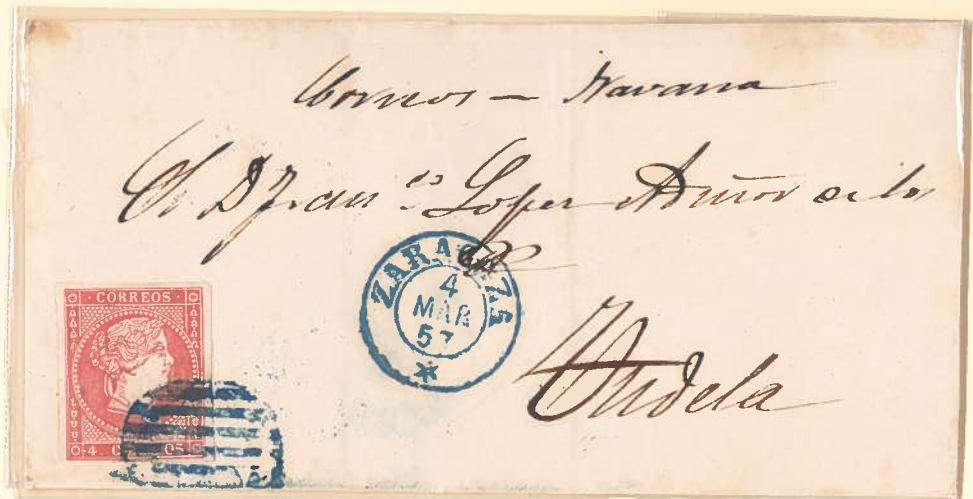 Correos – Navarra
S. D. Fran.co Lopez
ZARAGOZA
4
MAR
57
Tudela
CORREOS
4 C OS